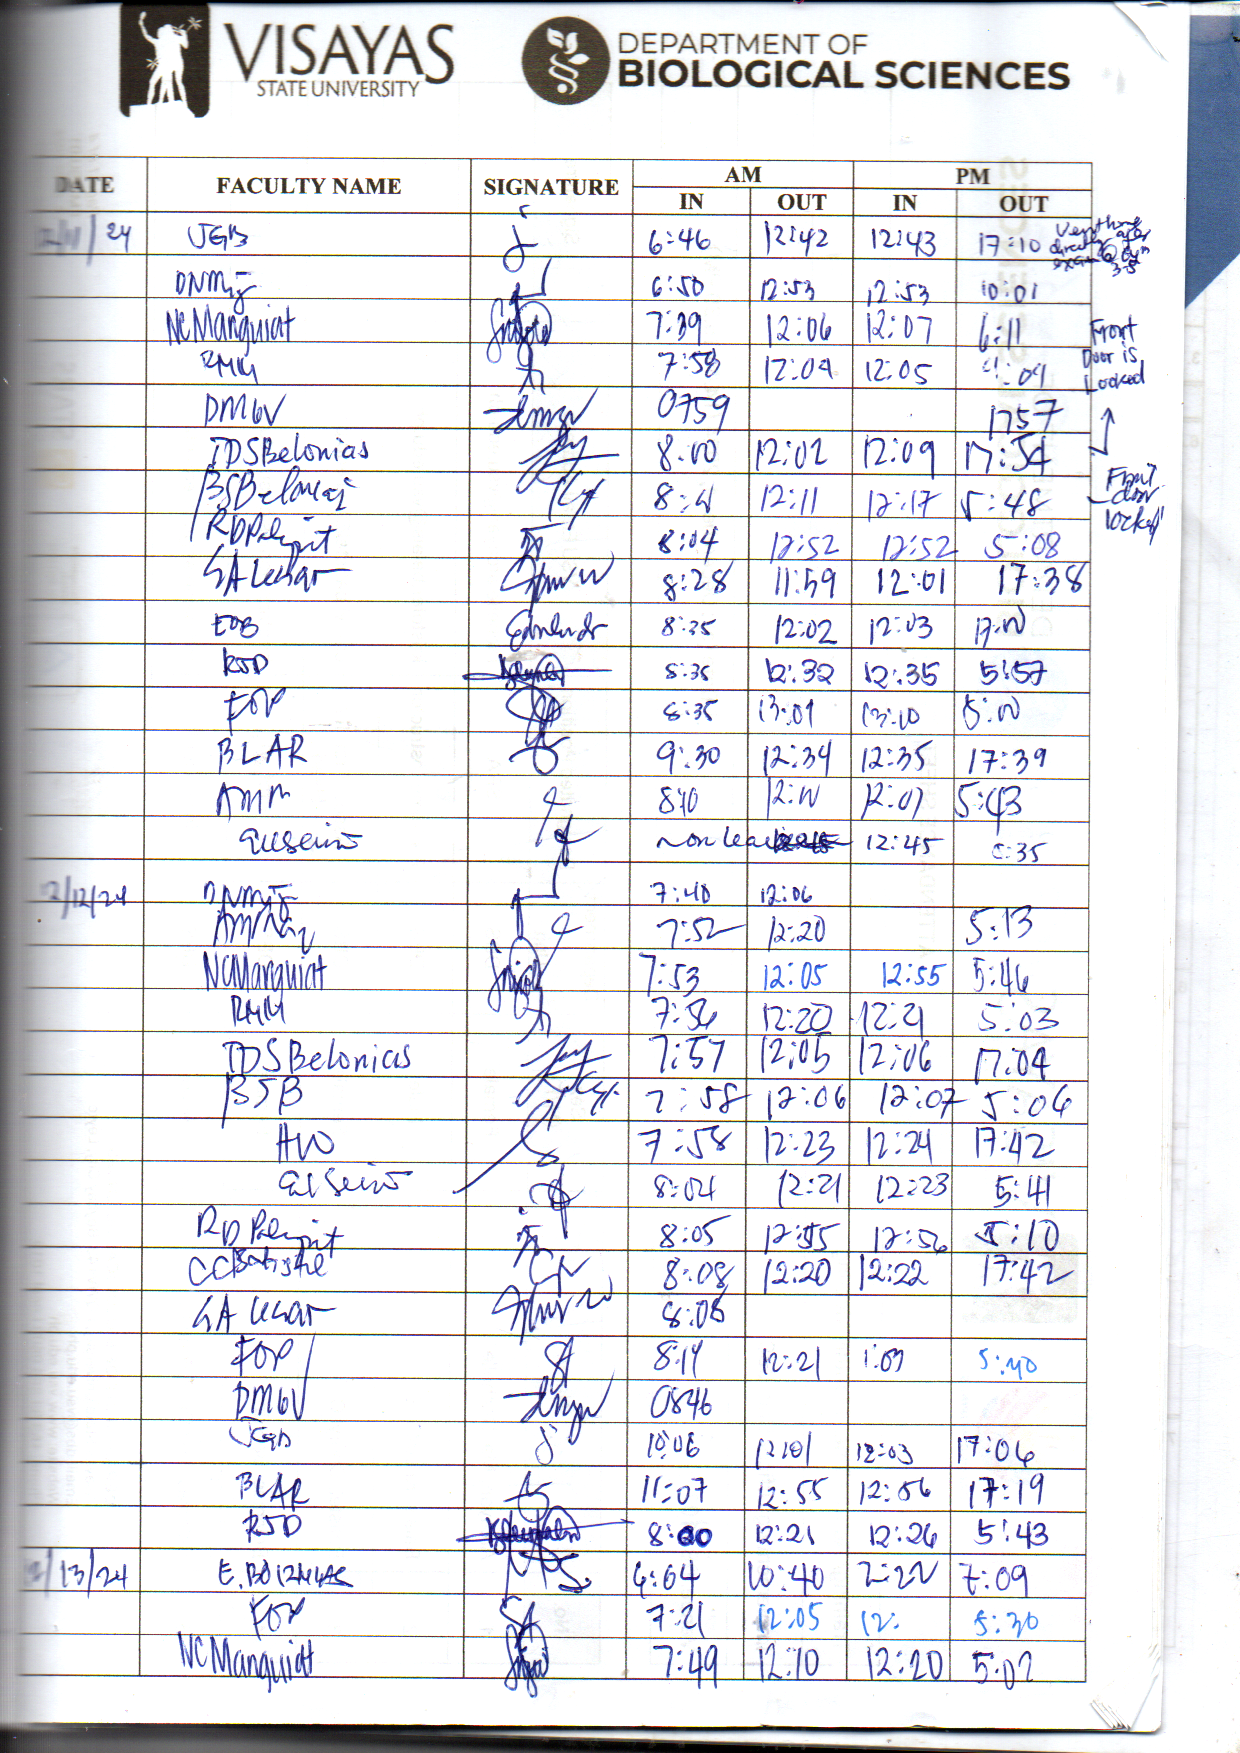 VISAYAS
STATE UNIVERSITY
DEPARTMENT OF
BIOLOGICAL SCIENCES
DATE FACULTY NAME SIGNATURE AM PM
IN OUT IN OUT
12/11/24 JGB 6:46 12:42 12:43 17:10
DNMJ 6:50 12:53 12:53 10:01
NCManguiat 7:39 12:06 12:07 6:11 Front
RMM 7:58 12:04 12:05 Door is Locked
DMGV 0759 1757
TDSBelonias 8:00 12:02 12:09 17:54
BSBelonias 8:01 12:11 12:17 5:48 Front door locked
RDPalijpit 8:04 12:52 12:52 5:08
SA 8:28 11:59 12:01 17:38
EOB 8:35 12:02 12:03 17:00
RJD 8:35 12:32 12:35 5:57
FOP 8:35 13:01 13:10 5:00
BLAR 9:30 12:34 12:35 17:39
AMM 12:01 5:43
12:45 5:35
12/12/24 DNMJ 7:40 12:06
7:52 12:20 5:13
NCManguiat 7:53 12:05 12:55 5:46
RMM 7:56 12:20 12:21 5:03
TDSBelonias 7:57 12:05 12:06 17:04
BSB 7:58 12:06 12:07 5:06
7:58 12:23 12:24 17:42
8:04 12:21 12:23 5:41
8:05 12:55 12:56 5:10
CCBatistel 8:08 12:20 12:22 17:42
SA 8:08
FOP 8:14 12:21 1:03 5:40
DMGV 0846
JGB 10:06 12:01 12:03 17:06
BLAR 11:07 12:55 12:56 17:19
RJD 8:00 12:21 12:26 5:43
12/13/24 6:04 10:40 2:22 7:09
FOP 7:21 12:05 12: 5:30
NCManguiat 7:49 12:10 12:20 5:02